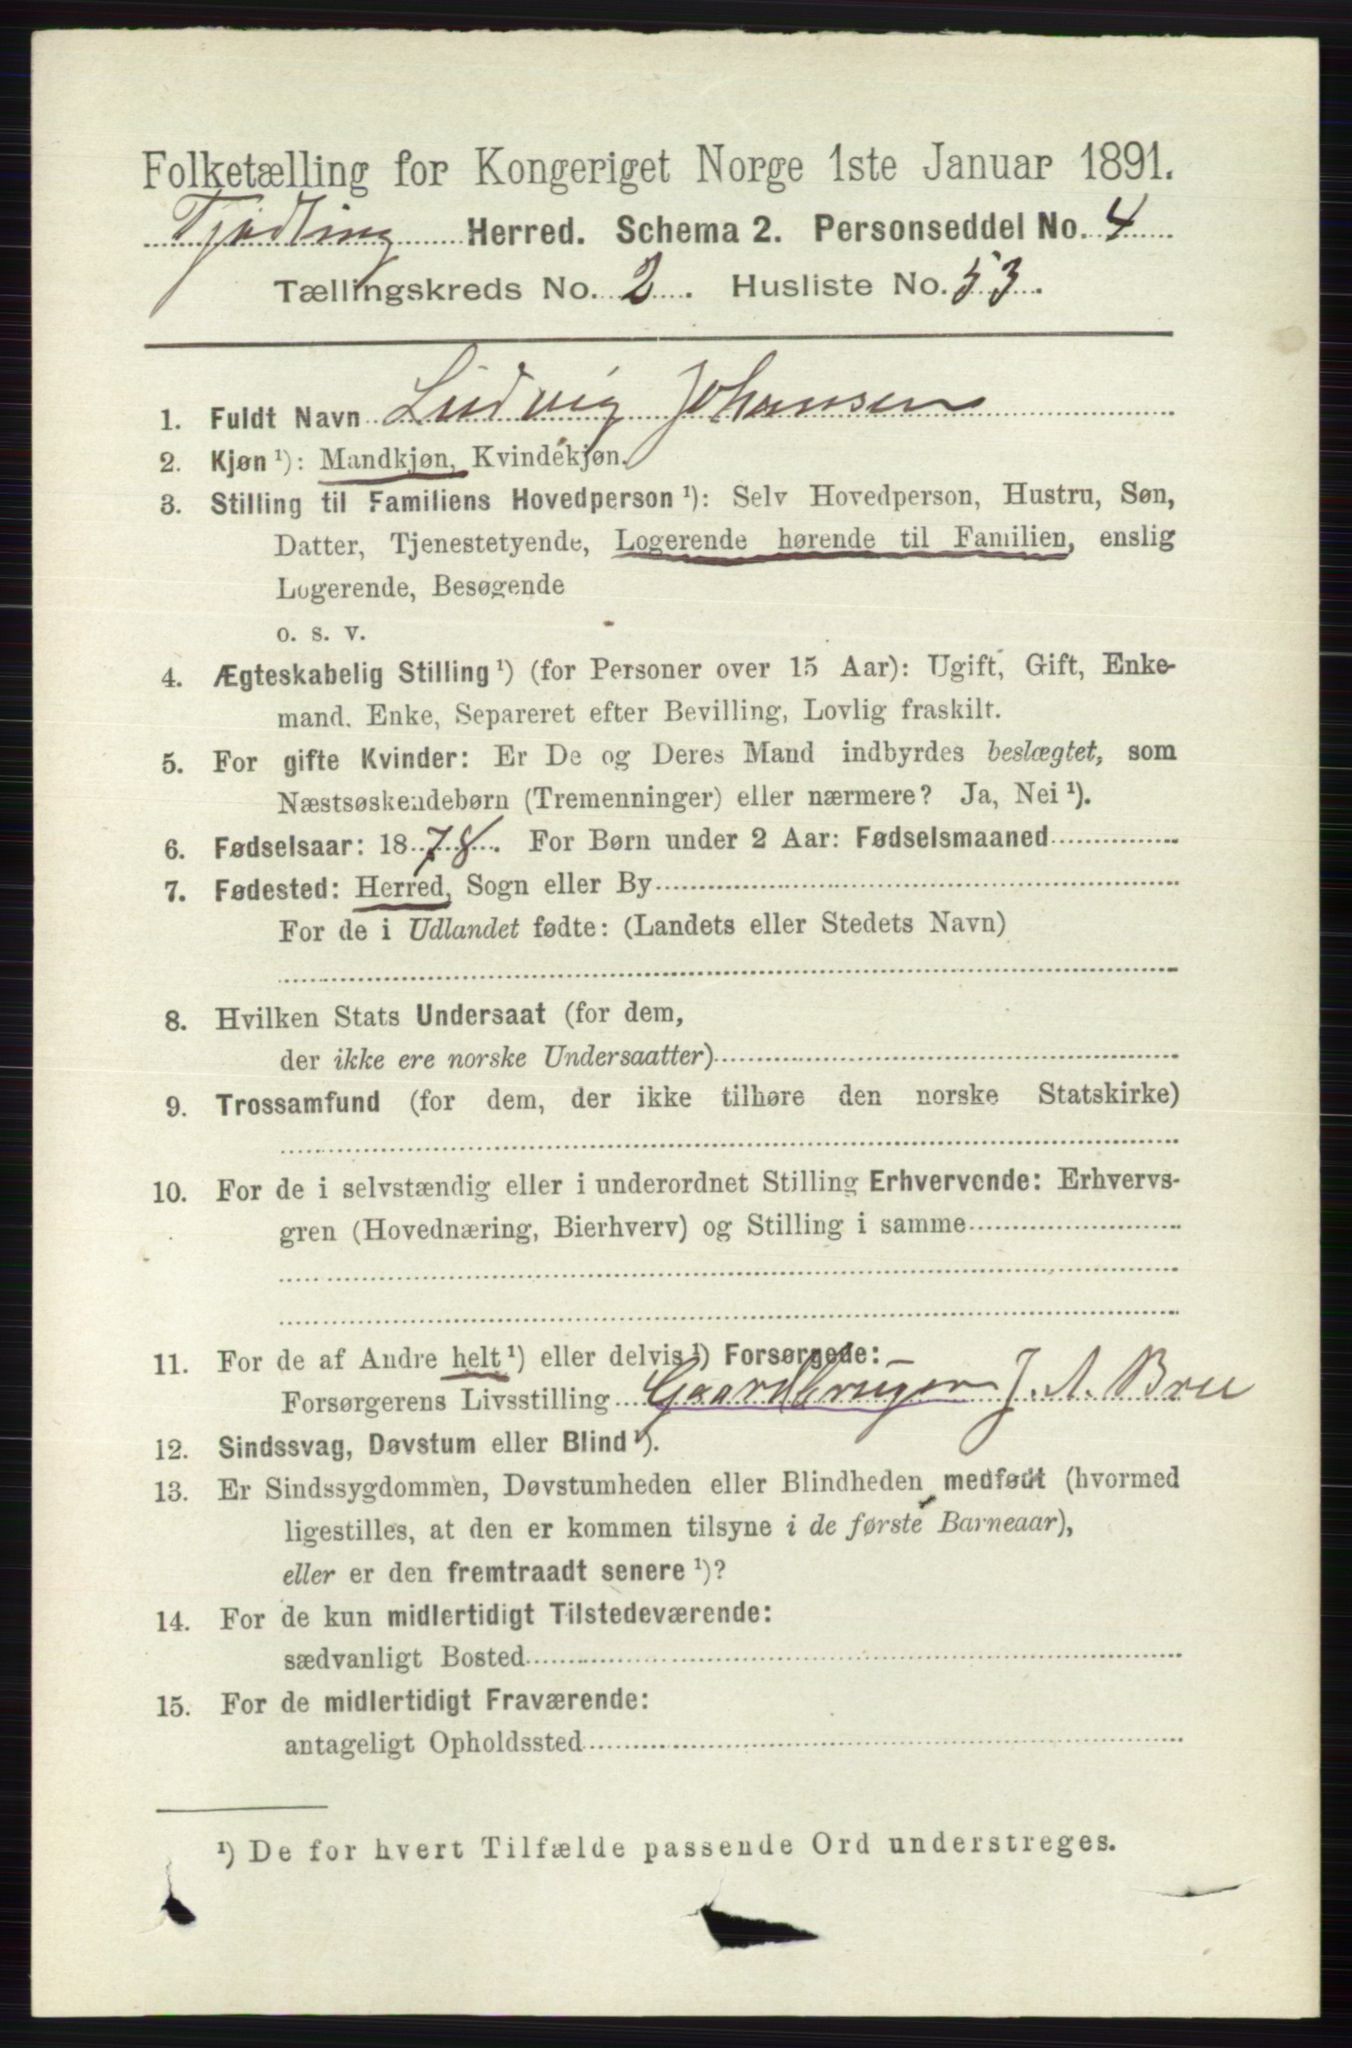 Folketælling for Kongeriget Norge 1ste Januar 1891.
Tjødling Herred. Schema 2. Personseddel No. 4
Tællingskreds No. 2. Husliste No. 53.
1. Fuldt Navn Ludvig Johansen
2. Kjøn ¹): Mandkjøn, Kvindekjøn.
3. Stilling til Familiens Hovedperson ¹): Selv Hovedperson, Hustru, Søn,
Datter, Tjenestetyende, Logerende hørende til Familien, enslig
Logerende, Besøgende
o. s. v.
4. Ægteskabelig Stilling ¹) (for Personer over 15 Aar): Ugift, Gift, Enke-
mand, Enke, Separeret efter Bevilling, Lovlig fraskilt.
5. For gifte Kvinder: Er De og Deres Mand indbyrdes beslægtet, som
Næstsøskendebørn (Tremenninger) eller nærmere? Ja, Nei ¹).
6. Fødselsaar: 1878. For Børn under 2 Aar: Fødselsmaaned
7. Fødested: Herred, Sogn eller By
For de i Udlandet fødte: (Landets eller Stedets Navn)
8. Hvilken Stats Undersaat (for dem,
der ikke ere norske Undersaatter)
9. Trossamfund (for dem, der ikke tilhøre den norske Statskirke)
10. For de i selvstændig eller i underordnet Stilling Erhvervende: Erhvervs-
gren (Hovednæring, Bierhverv) og Stilling i samme
11. For de af Andre helt ¹) eller delvis ¹) Forsørgede:
Forsørgerens Livsstilling Gaardbruger J. A. Bree
12. Sindssvag, Døvstum eller Blind ¹).
13. Er Sindssygdommen, Døvstumheden eller Blindheden medfødt (hvormed
ligestilles, at den er kommen tilsyne i de første Barneaar),
eller er den fremtraadt senere ¹)?
14. For de kun midlertidigt Tilstedeværende:
sædvanligt Bosted
15. For de midlertidigt Fraværende:
antageligt Opholdssted
¹) De for hvert Tilfælde passende Ord understreges.